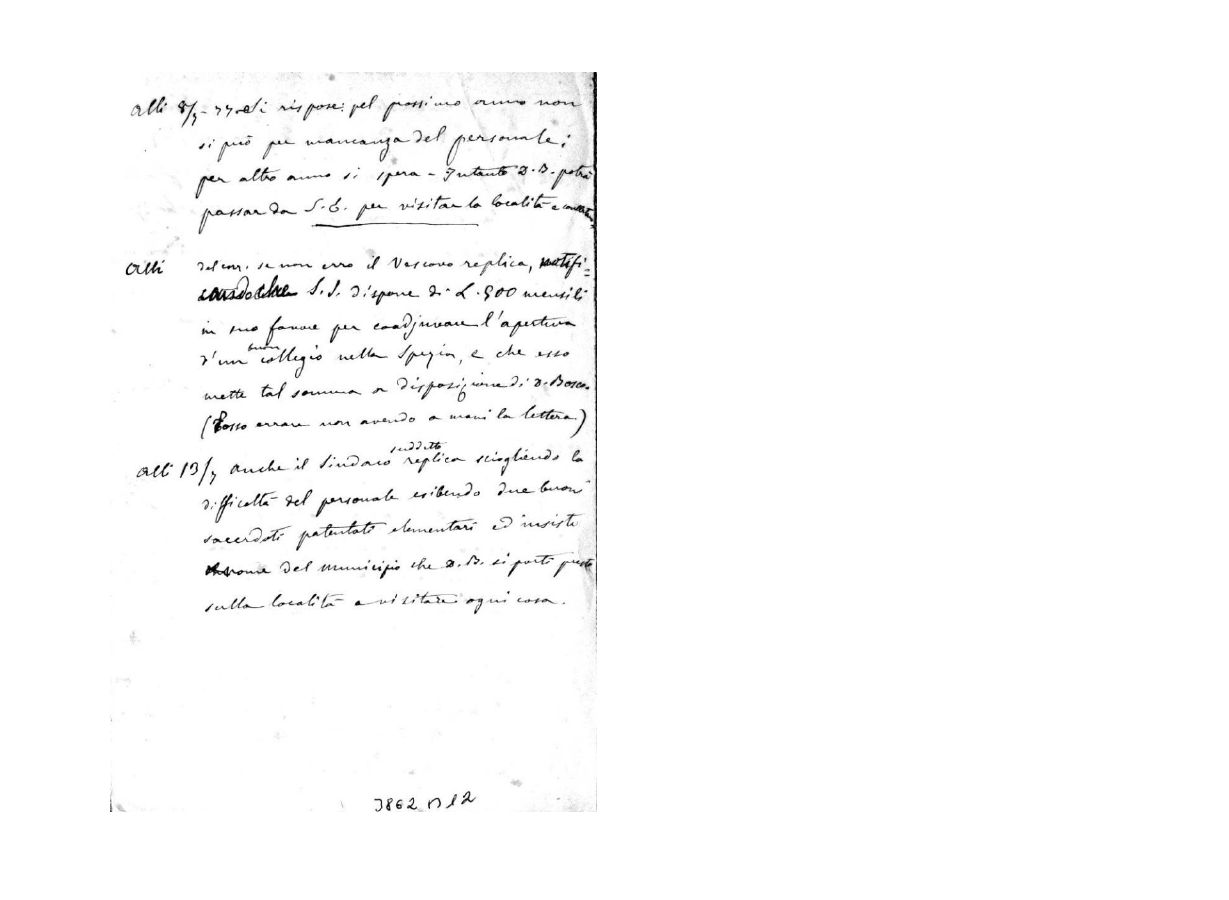 Alli 8/7-77. Si rispose: pel prossimo anno non
si può per mancanza del personale;
per altro anno si spera - Intanto D. B. potrà
passar da S. E. per visitar la località e
Alli del corr. se non erro il Vescovo replica, notifi=
cando che S. S. dispone di L. 500 mensili
in suo favore per coadjuvare l'apertura
d'un buon collegio nella Spezia, e che esso
mette tal somma a disposizione di D. Bosco.
(Posso errare non avendo a mani la lettera)
Alli 13/7 anche il Sindaco suddetto replica sciogliendo la
difficoltà del personale esibendo due buoni
sacerdoti patentati elementari ed insiste
nome del municipio che D. B. si porti presto
sulla località a visitare ogni cosa.
3862 B 12